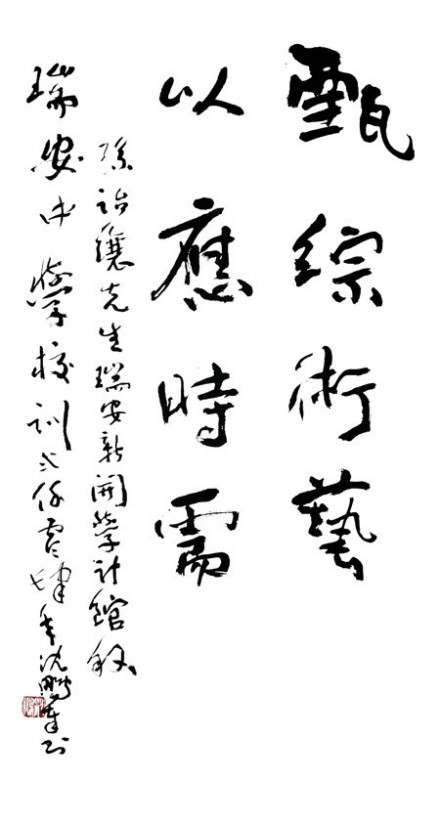 甄綜術藝
以應時需
孫詒讓先生瑞安新開學計館敘
瑞安中學校訓弍仟零肆年沈鵬